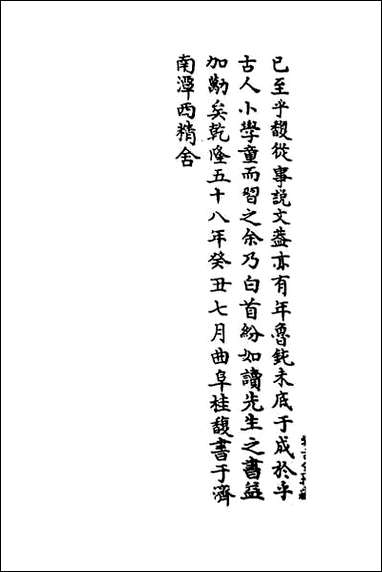 已至乎馥從事說文葢亦有年魯鈍未底于成於乎
古人小學童而習之余乃白首紛如讀先生之書益
加勵矣乾隆五十八年癸丑七月曲阜桂馥書于濟
南潭西精舍